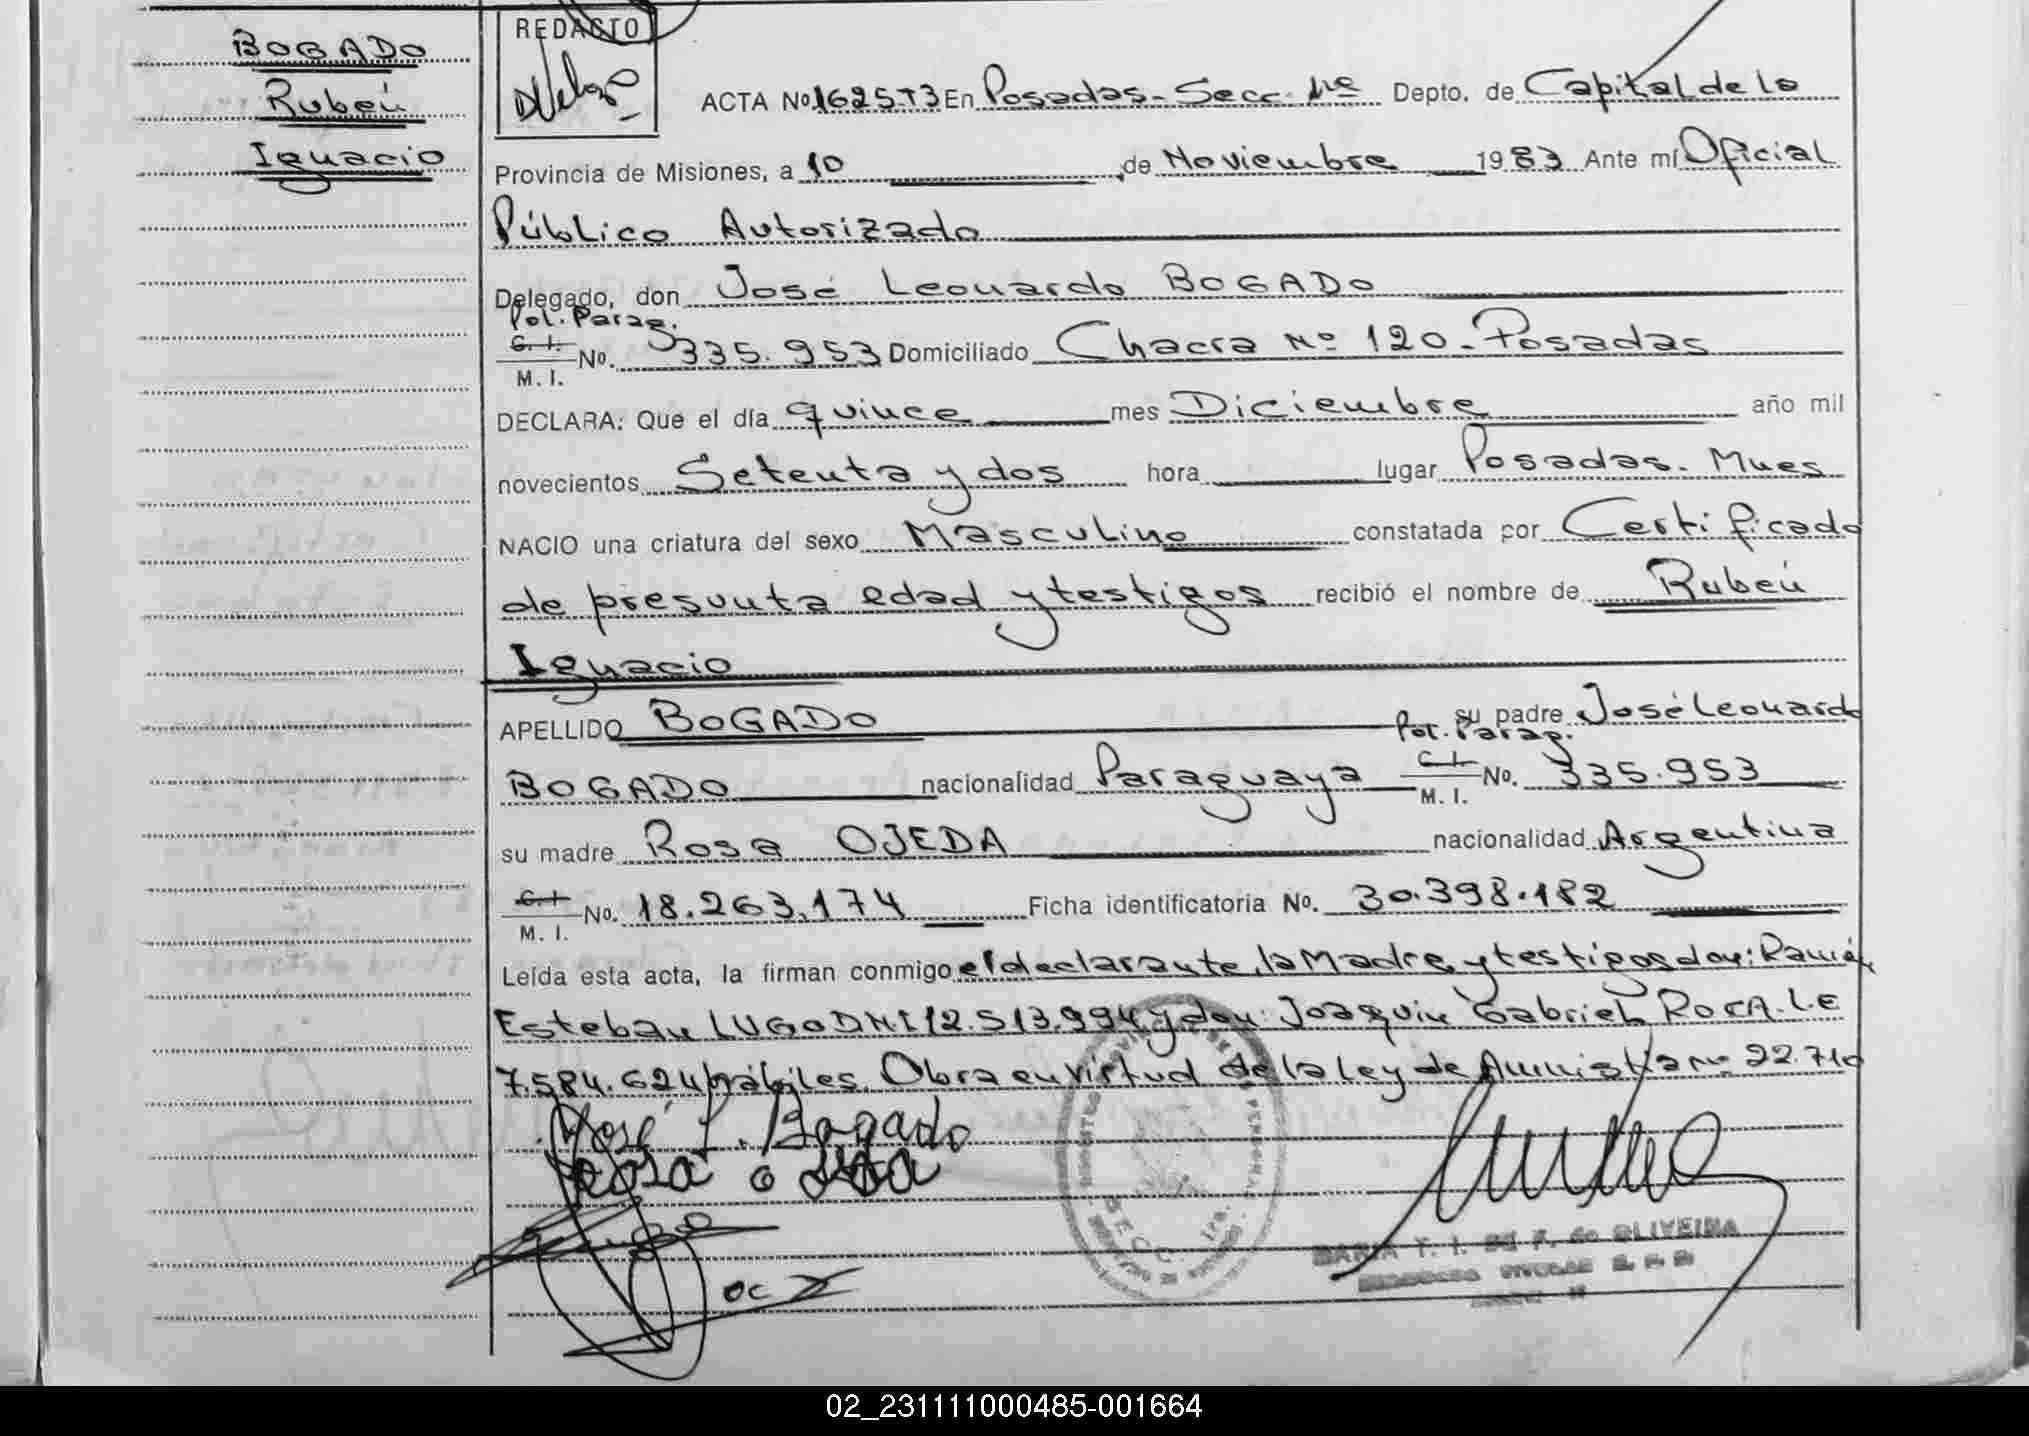 BOGADO
Rubén
Ignacio
REDACTO
ACTA Nº 1625 T3 En Posadas - Secc. 1ra Depto. de Capital de la
Provincia de Misiones, a 10 de Noviembre 1983 Ante mí Oficial
Público Autorizado
Delegado, don José Leonardo BOGADO
Pol. Parag.
C. I. No. 335.953 Domiciliado Chacra Nº 120 - Posadas
M. I.
DECLARA: Que el día quince mes Diciembre año mil
novecientos Setenta y dos hora lugar Posadas. Mnes
NACIO una criatura del sexo Masculino constatada por Certificado
de presunta edad y testigos recibió el nombre de Rubén
Ignacio
APELLIDO BOGADO su padre José Leonardo
Pol. Parag.
BOGADO nacionalidad Paraguaya C. I. No. 335.953
M. I.
su madre Rosa OJEDA nacionalidad Argentina
C. I. No. 18.263.174 Ficha identificatoria No. 30.398.182
M. I.
Leída esta acta, la firman conmigo el declarante, la Madre y testigos don: Ramón
Esteban LUGO DNI 12.513.994 y don: Joaquin Gabriel ROCA. L.E
7.584.624 hábiles. Obra en virtud de la Ley de Amnistia nº 22.710
José L. Bogado
Rosa
SECC. 1ra.
MARIA T. I. DE F. de OLIVEIRA
02_231111000485-001664